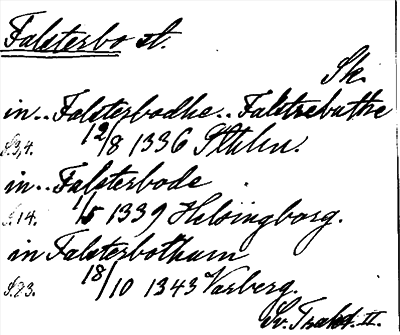 Falsterbo st.
Sk.
in .. Falsterbodhe .. Falstrebuthe
S.3,4. 12/8 1336 Sthlm.
in .. Falsterbode
S.14. 1/5 1339 Helsingborg.
in Falsterbothum
S.23. 18/10 1343 Varberg.
Sv. Trakt. II.